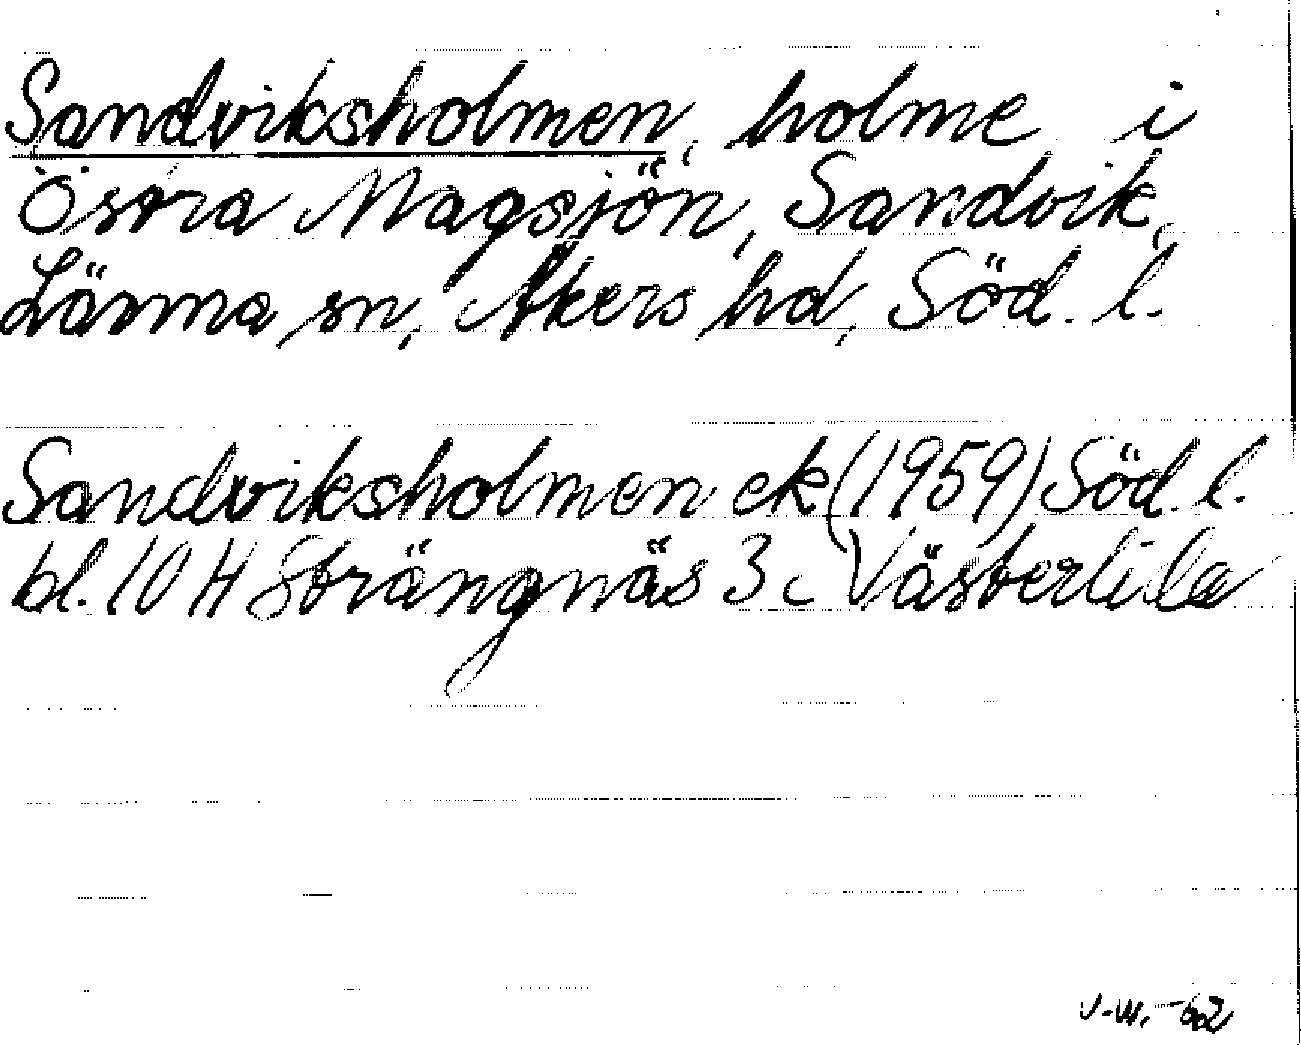 Sandviksholmen, holme i
Östra Magsjön, Sandvik,
Länna sn, Åkers hd, Söd. l.
Sandviksholmen ek (1959) Söd. l.
bl. 10 H Strängnäs 3c Västerlila